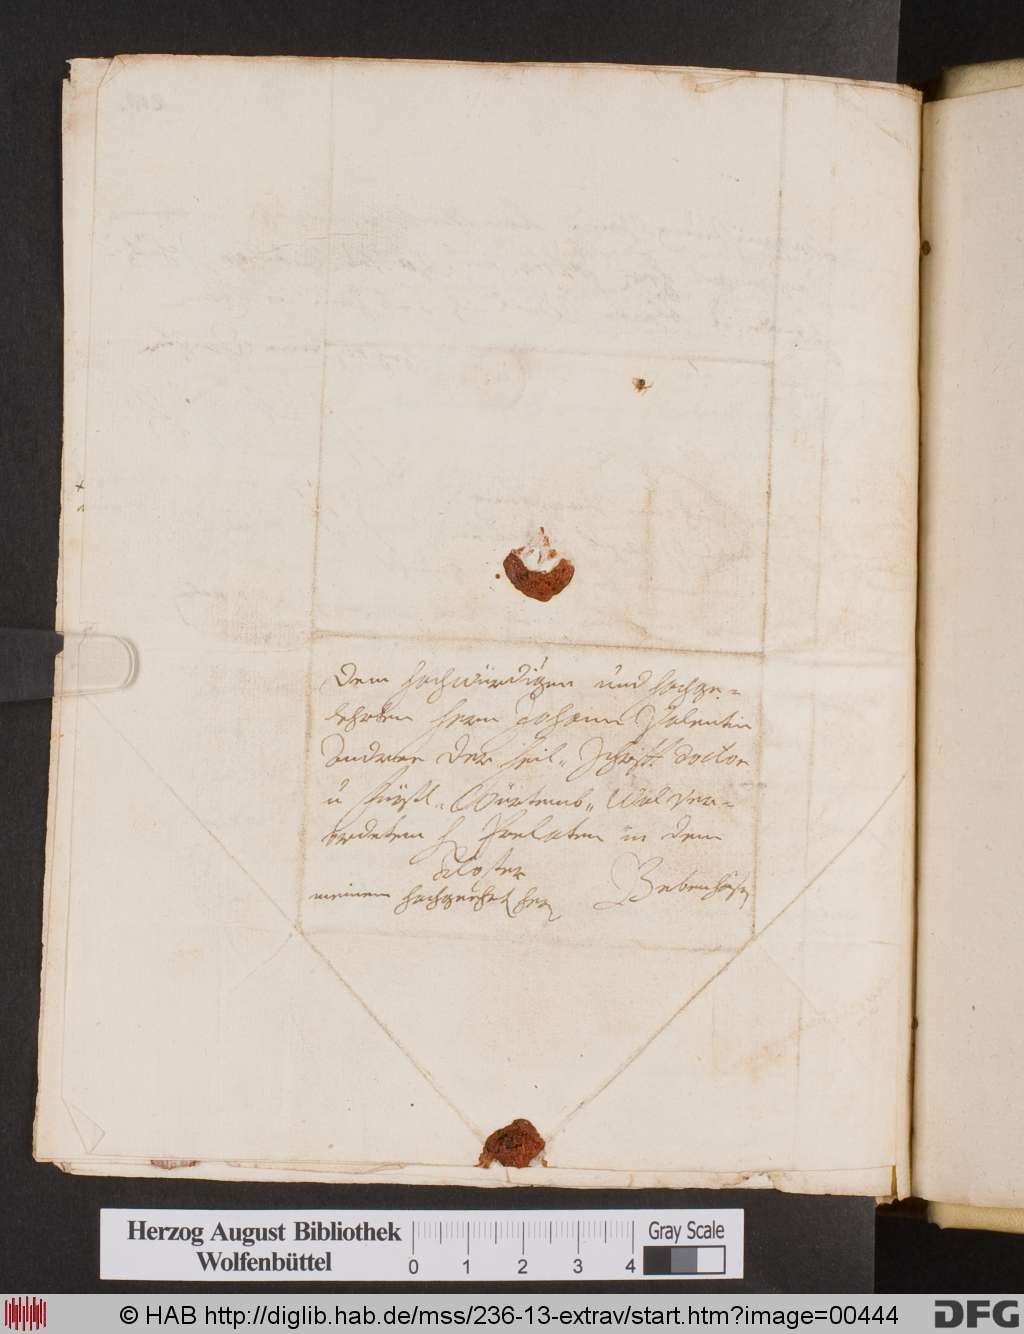 Dem hochwürdigen und hochge=
lehrten Herrn Johann Valentin
Andreae der heil. Schrifft Doctor
u fürstl. Würtemb. Wol ver=
ordetem H Prelaten in dem
Closter
meinem hochgeehrt her Bebenhaus
Herzog August Bibliothek
Wolfenbüttel
0 1 2 3 4
Gray Scale
© HAB http://diglib.hab.de/mss/236-13-extrav/start.htm?image=00444
DFG